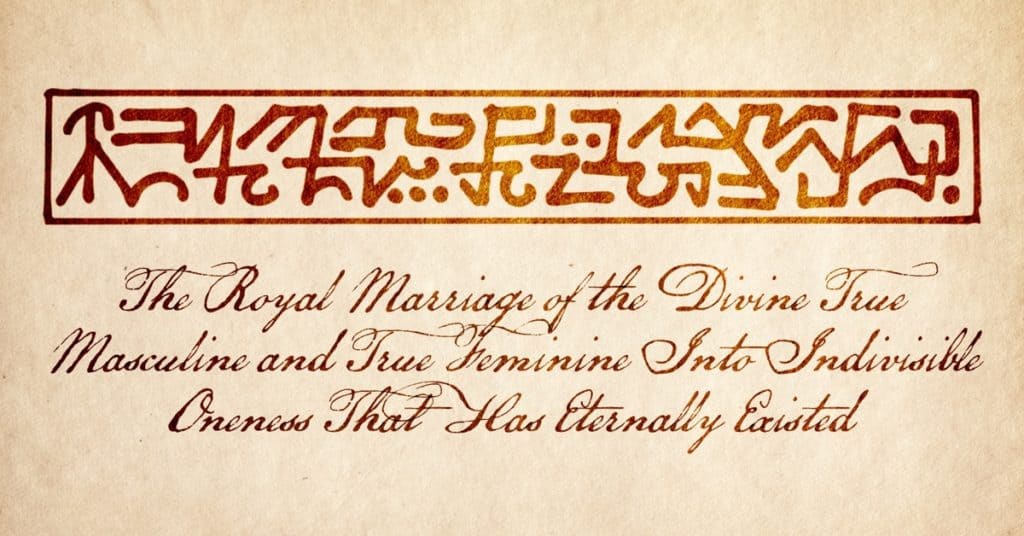 The Royal Marriage of the Divine True
Masculine and True Feminine Into Indivisible
Oneness That Has Eternally Existed